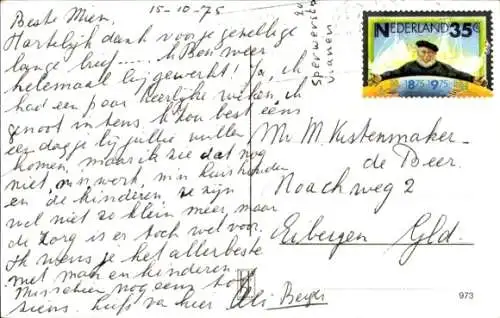 15-10-75
Beste Mien,
Hartelijk dank voor je gezellige
lange brief ---- Ik ben weer
helemaal bijgewerkt! Ja, ik
had een paar heerlijke weken, ik
genoot intens. Ik zou best eens
een dagje bij jullie willen
komen, maar ik zie dat nog
niet, m'n werk, m'n huishouden
en de kinderen, ze zijn
wel niet zo klein meer, maar
de zorg is er toch wel voor.
Ik wens je het allerbeste
met man en kinderen.
Misschien nog eens tot
ziens. Liefs van hier Berger
Sperwerstr
Vianen
NEDERLAND 35c
1875 1975
Mw M. Kustenmaker-
de Beer.
Noachweg 2
Eibergen Gld.
973